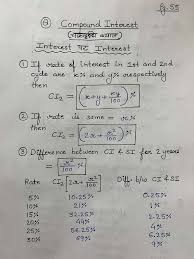 pg. 55
Compound Interest
(चक्रवृद्धि ब्याज)
Interest पर Interest
① If rate of Interest in 1st and 2nd
cycle are x% and y% respectively
then
CI₂ = (x+y+xy/100)%
② If rate is same = x%
then
CI₂ = (2x+x²/100)%
③ Difference between CI & SI for 2 years
= (x²/100)%
Rate CI₂[2x+x²/100] Diff b/w CI & SI
5% 10.25% 0.25%
10% 21% 1%
15% 32.25% 2.25%
20% 44% 4%
25% 56.25% 6.25%
30% 69% 9%